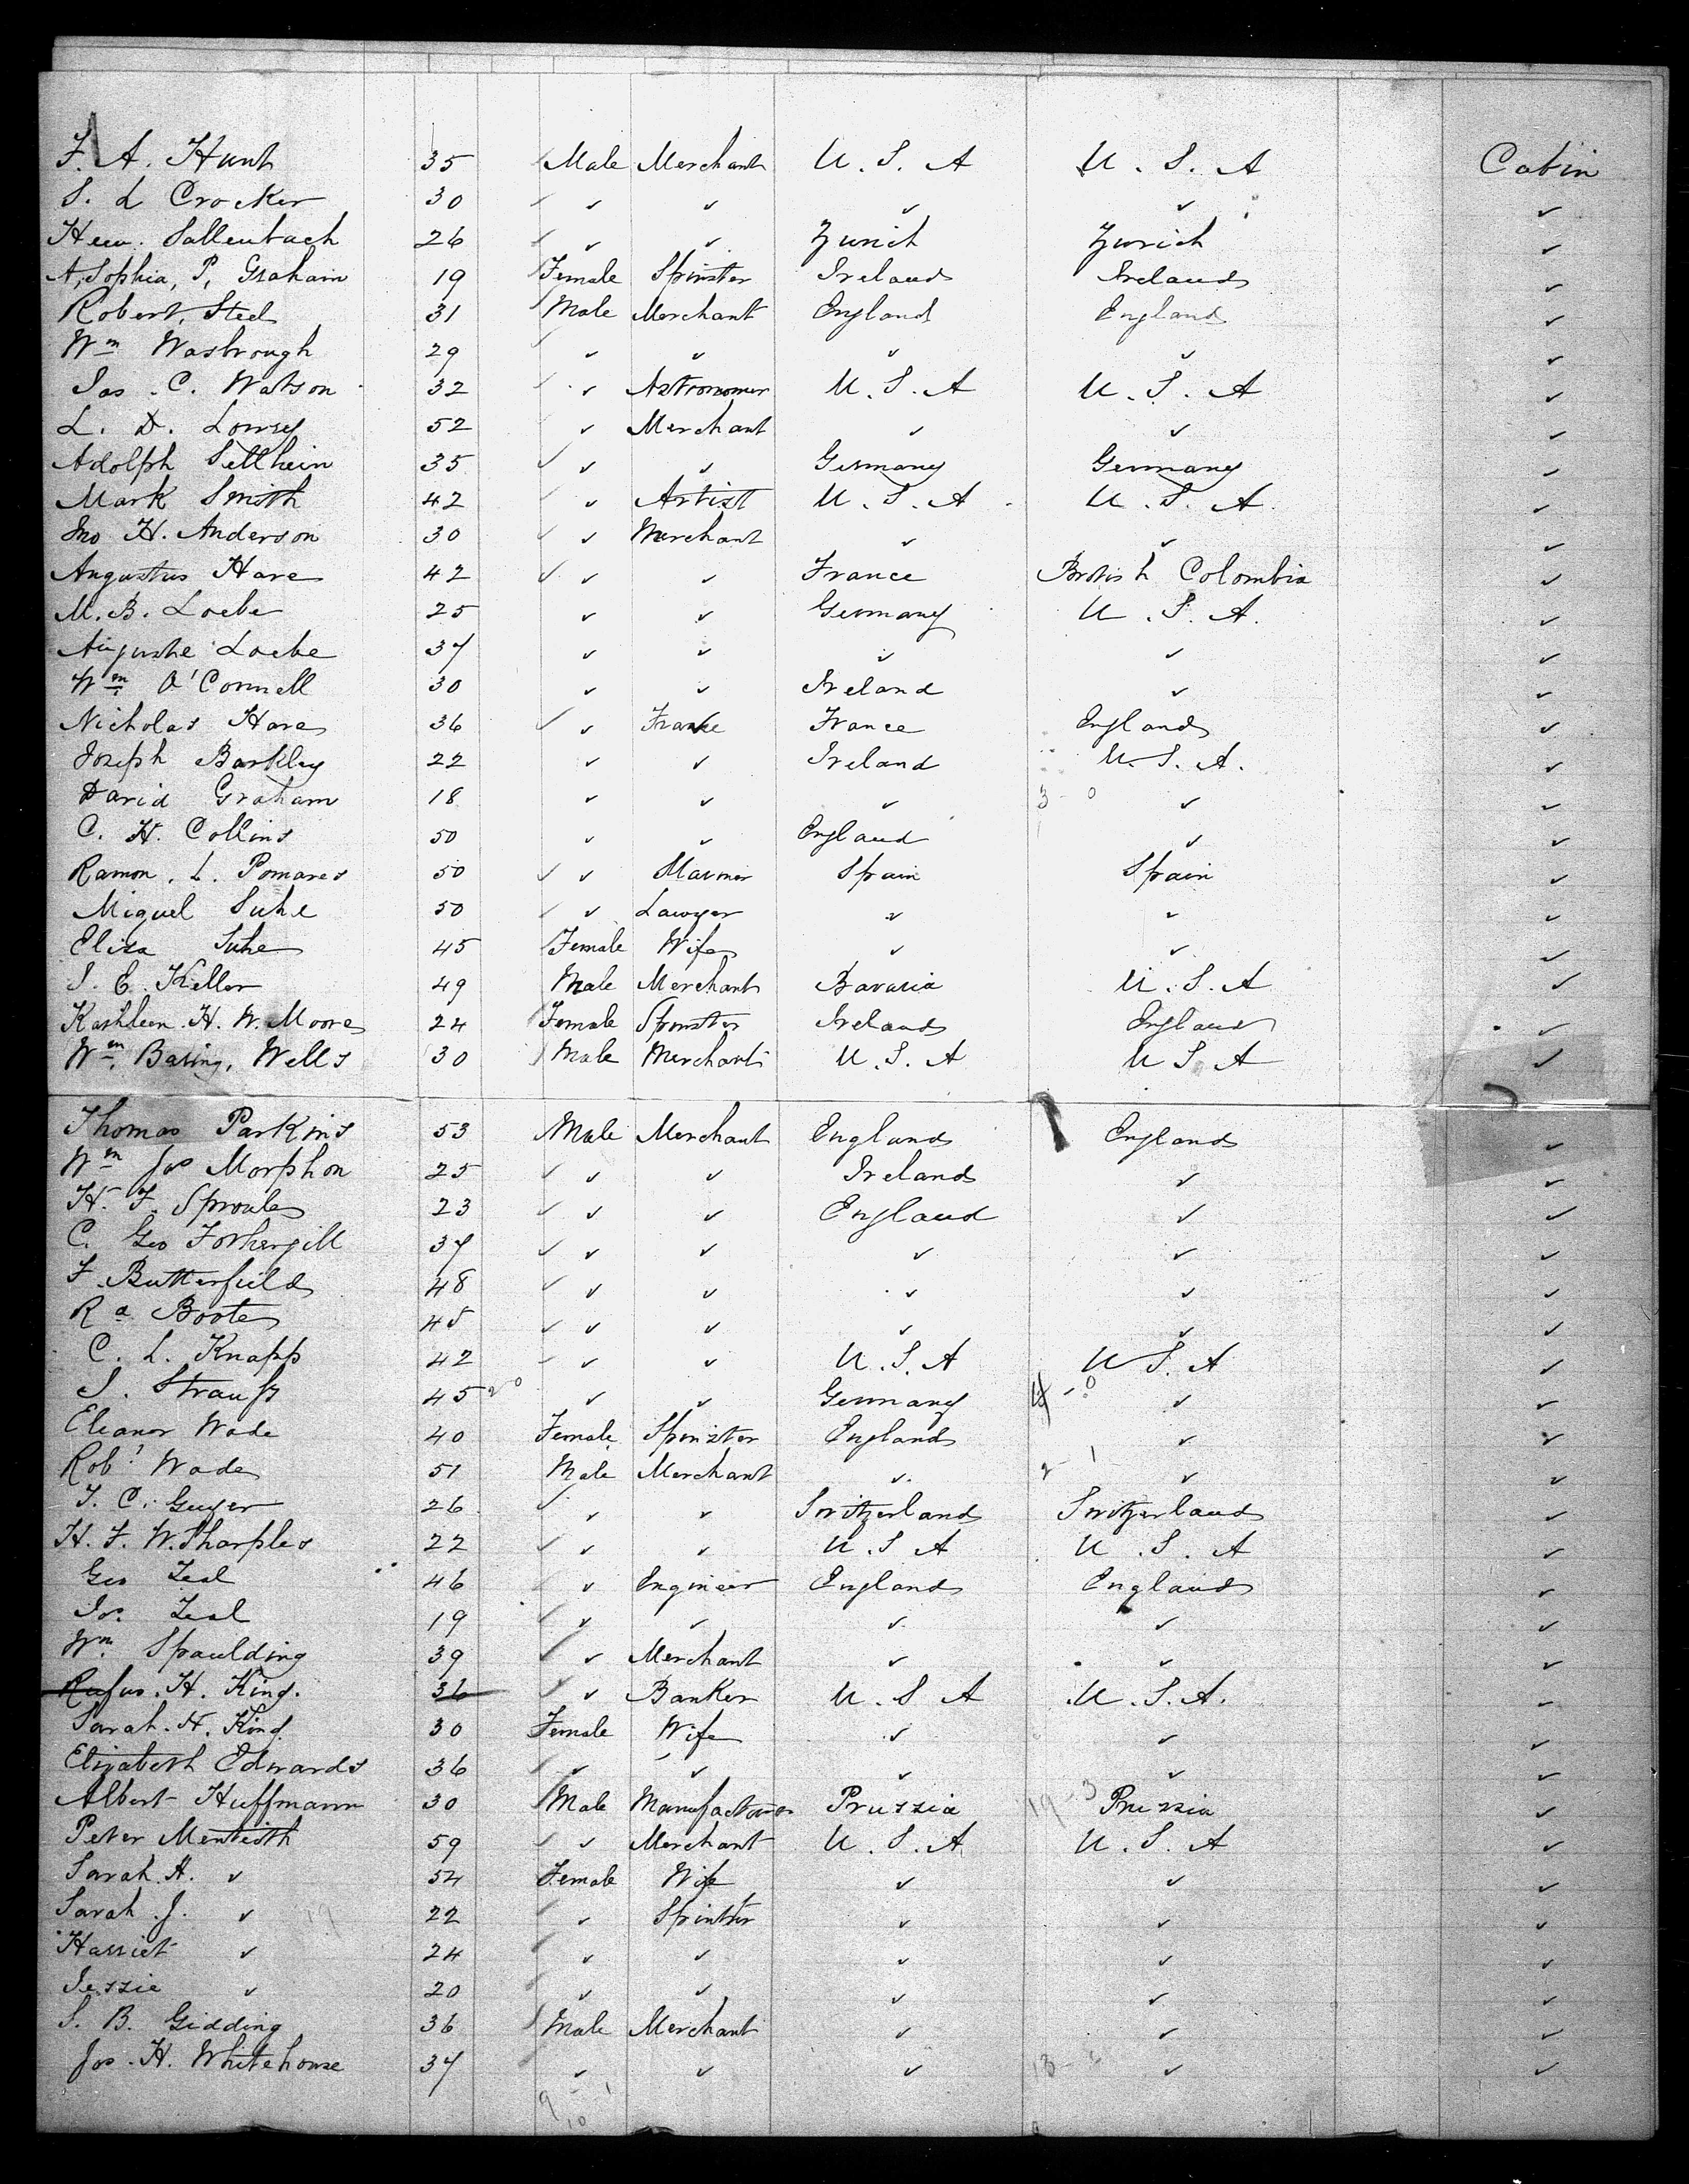 F. A. Hunt 35 Male Merchant U. S. A U. S. A Cabin
S. L Crocker 30 ✓ ✓ ✓ ✓ ✓
Sallenbach 26 ✓ ✓ Zurich Zurich ✓
A, Sophia, P, Graham 19 Female Spinster Ireland Ireland ✓
Robert Steel 31 Male Merchant England England ✓
Wm Wasbrough 29 ✓ ✓ ✓ ✓ ✓
Jas. C. Watson 32 ✓ Astronomer U. S. A U. S. A ✓
L. D. Lowry 52 ✓ Merchant ✓ ✓ ✓
Adolph 35 ✓ ✓ Germany Germany ✓
Mark Smith 42 ✓ Artist U. S. A U. S. A. ✓
Jno H. Anderson 30 ✓ Merchant ✓ ✓ ✓
Augustus Hare 42 ✓ ✓ France British Colombia ✓
M. B. Loebe 25 ✓ ✓ Germany U. S. A. ✓
Auguste Loebe 37 ✓ ✓ ✓ ✓ ✓
Wm O'Connell 30 ✓ ✓ Ireland ✓ ✓
Nicholas Hare 36 ✓ France England ✓
Joseph Barkley 22 ✓ ✓ Ireland U. S. A. ✓
David Graham 18 ✓ ✓ ✓ 3 - 0 ✓ ✓
C. H. Collins 50 ✓ ✓ England ✓ ✓
Ramon. L. Pomares 50 ✓ Mariner Spain Spain ✓
Miguel Suhe 50 ✓ Lawyer ✓ ✓ ✓
Eliza Suhe 45 Female Wife ✓ ✓ ✓
J. E. Keller 49 Male Merchant Bavaria U. S. A ✓
Kathleen. H. W. Moore 24 Female Spinster Ireland England ✓
Wm Baring, Wells 30 Male Merchant U. S. A U S. A ✓
Thomas Parkins 53 Male Merchant England England ✓
Wm Jos Morphon 25 ✓ ✓ Ireland ✓ ✓
H. F. Sproules 23 ✓ ✓ England ✓ ✓
C. Geo Fothergill 37 ✓ ✓ ✓ ✓ ✓
F. Butterfield 48 ✓ ✓ ✓ ✓ ✓
Rd Boote 45 ✓ ✓ ✓ ✓ ✓
C. L. Knapp 42 ✓ ✓ U. S. A U S. A ✓
S. Strauss 45 ✓ ✓ Germany ✓ ✓
Eleanor Wade 40 Female Spinster England ✓ ✓
Robt Wade 51 Male Merchant ✓ 2 - 1 ✓ ✓
J. C. Guyer 26 ✓ ✓ Switzerland Switzerland ✓
H. F. W. Tharples 22 ✓ ✓ U. S A U. S. A ✓
Geo Zeal 46 ✓ Engineer England England ✓
Jos. Zeal 19 ✓ ✓ ✓ ✓ ✓
Wm. Spaulding 39 ✓ Merchant ✓ ✓ ✓
Rufus. H. King. 36 ✓ Banker U. S A U. S. A. ✓
Sarah. H. King 30 Female Wife ✓ ✓ ✓
Elizabeth Edwards 36 ✓ ✓ ✓ ✓ ✓
Albert Huffmann 30 Male Manufacturer Prussia 19 - 3 Prussia ✓
Peter Menteith 59 ✓ Merchant U. S. A U. S. A ✓
Sarah. A. ✓ 54 Female Wife ✓ ✓ ✓
Sarah. J. ✓ 19 22 ✓ Spinster ✓ ✓ ✓
Harriet ✓ 24 ✓ ✓ ✓ ✓ ✓
Jessie ✓ 20 ✓ ✓ ✓ ✓ ✓
S. B. Gidding 36 Male Merchant ✓ ✓ ✓
Jos. H. Whitehouse 37 ✓ ✓ ✓ ✓ ✓
9 - 1
10